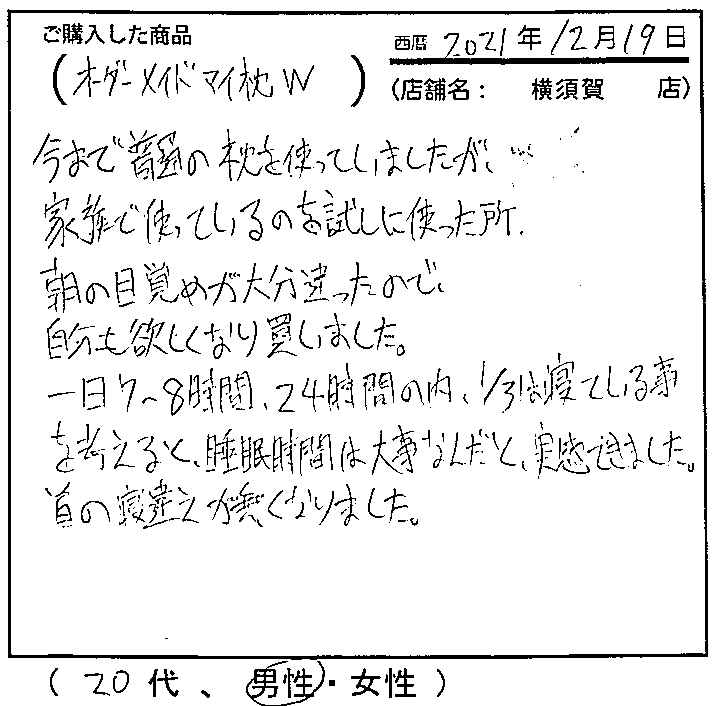 ご購入した商品
西暦 2021年12月19日
(オーダーメイドマイ枕W)
(店舗名: 横須賀 店)
今まで普通の枕を使っていましたが、
家族で使っているのを試しに使った所、
朝の目覚めが大分違ったので、
自分も欲しくなり買いました。
一日7~8時間、24時間の内、1/3は寝ている事
を考えると、睡眠時間は大事なんだと、実感できました。
首の寝違えが無くなりました。
(20代、男性・女性)